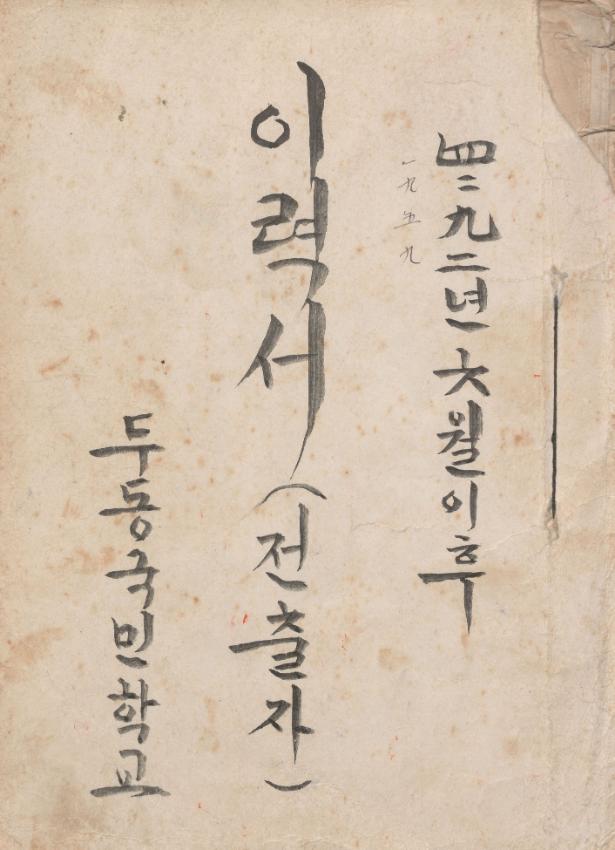 四二九二년 六월이후
一九五九
이력서(전출자)
두동국민학교